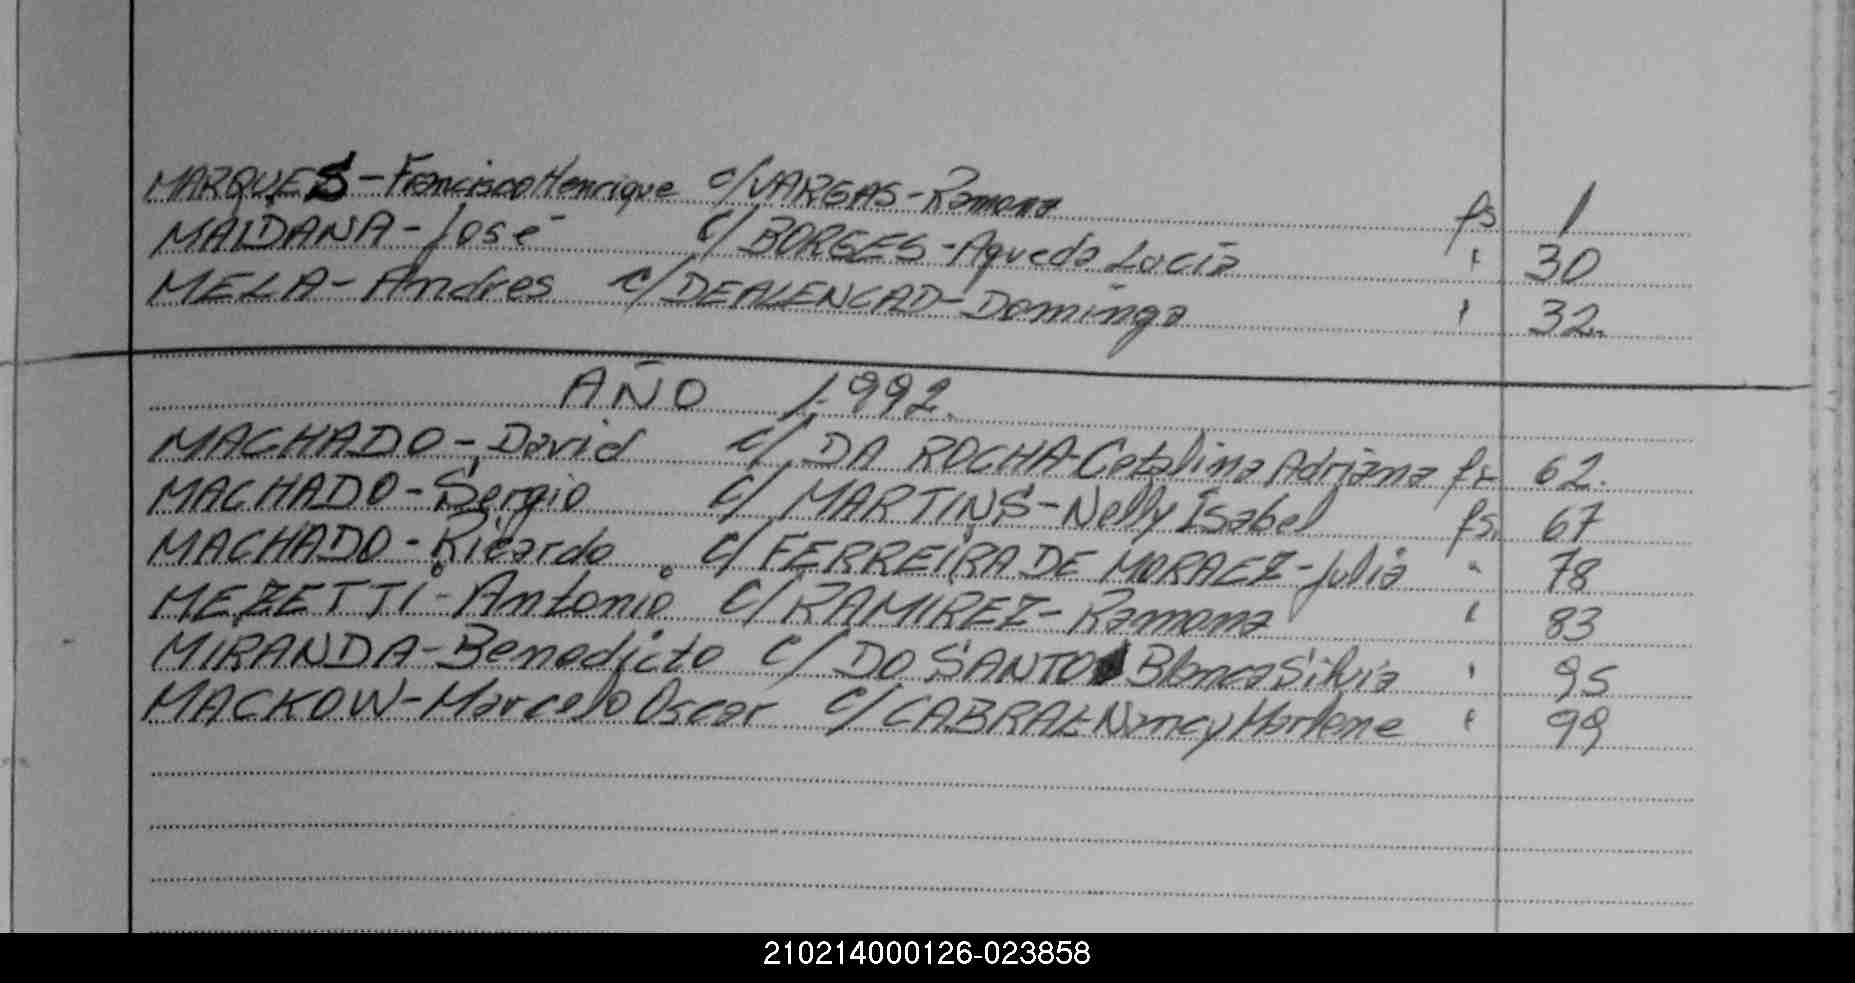 MARQUES - Francisco Henrique c/ VARGAS - Ramona fs 1
MAIDANA - José c/ BORGES - Agueda Lucia " 30
MELA - Andres c/ DEALENCAD - Dominga " 32.
AÑO 1.992.
MACHADO - David c/ DA ROCHA - Catalina Adriana fs. 62.
MACHADO - Sergio c/ MARTINS - Nelly Isabel fs. 67
MACHADO - Ricardo c/ FERREIRA DE MORAEZ - Julia " 78
MEZETTI - Antonio c/ RAMIREZ - Ramona " 83
MIRANDA - Benedicto c/ DO SANTO Blanca Silvia " 95
MACKOW - Marcelo Oscar c/ CABRAL - Nancy Marlene " 99
210214000126-023858